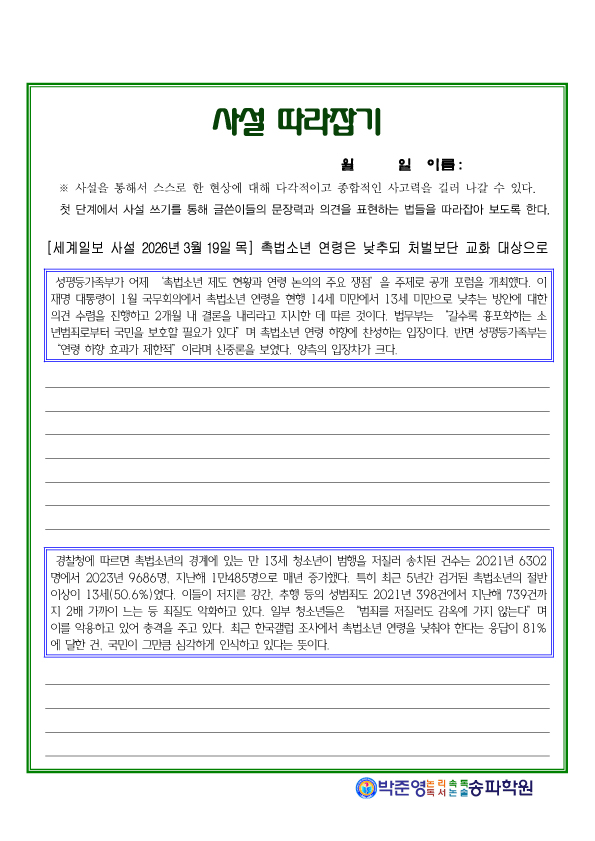 사설 따라잡기
월 일 이름:
※ 사설을 통해서 스스로 한 현상에 대해 다각적이고 종합적인 사고력을 길러 나갈 수 있다.
첫 단계에서 사설 쓰기를 통해 글쓴이들의 문장력과 의견을 표현하는 법들을 따라잡아 보도록 한다.
[세계일보 사설 2026년 3월 19일 목] 촉법소년 연령은 낮추되 처벌보단 교화 대상으로
성평등가족부가 어제 ‘촉법소년 제도 현황과 연령 논의의 주요 쟁점’을 주제로 공개 포럼을 개최했다. 이
재명 대통령이 1월 국무회의에서 촉법소년 연령을 현행 14세 미만에서 13세 미만으로 낮추는 방안에 대한
의견 수렴을 진행하고 2개월 내 결론을 내리라고 지시한 데 따른 것이다. 법무부는 “갈수록 흉포화하는 소
년범죄로부터 국민을 보호할 필요가 있다”며 촉법소년 연령 하향에 찬성하는 입장이다. 반면 성평등가족부는
“연령 하향 효과가 제한적”이라며 신중론을 보였다. 양측의 입장차가 크다.
경찰청에 따르면 촉법소년의 경계에 있는 만 13세 청소년이 범행을 저질러 송치된 건수는 2021년 6302
명에서 2023년 9686명, 지난해 1만485명으로 매년 증가했다. 특히 최근 5년간 검거된 촉법소년의 절반
이상이 13세(50.6%)였다. 이들이 저지른 강간, 추행 등의 성범죄도 2021년 398건에서 지난해 739건까
지 2배 가까이 느는 등 죄질도 악화하고 있다. 일부 청소년들은 “범죄를 저질러도 감옥에 가지 않는다”며
이를 악용하고 있어 충격을 주고 있다. 최근 한국갤럽 조사에서 촉법소년 연령을 낮춰야 한다는 응답이 81%
에 달한 건, 국민이 그만큼 심각하게 인식하고 있다는 뜻이다.
박준영 논리속독 독서논술 송파학원